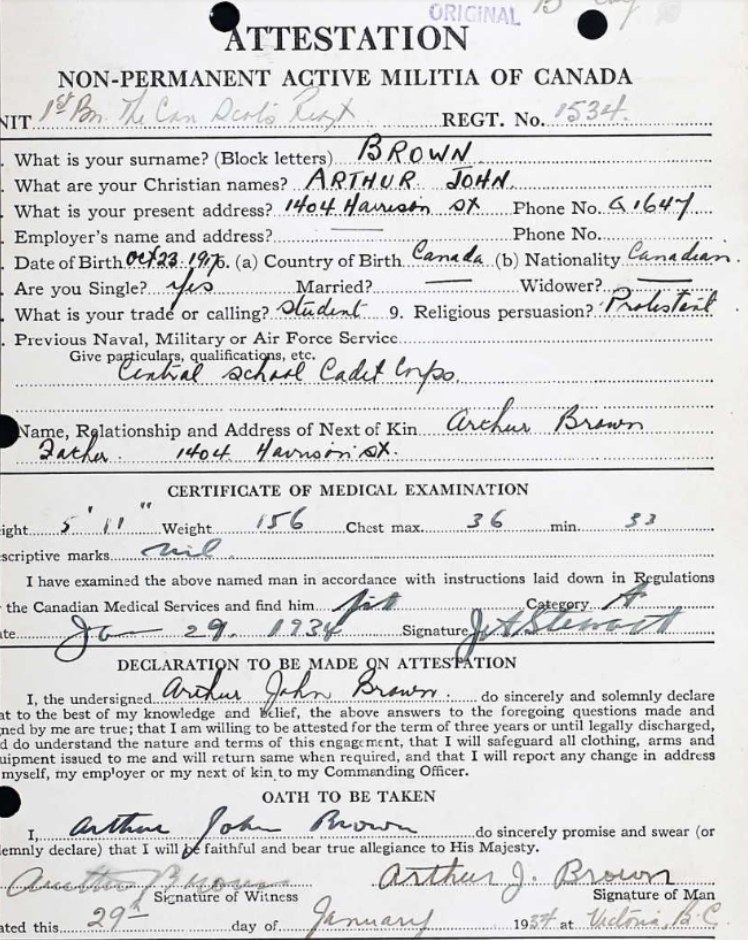 ORIGINAL
ATTESTATION
NON-PERMANENT ACTIVE MILITIA OF CANADA
NIT 1st Bn. The Can Scots Regt REGT. No. 1534.
. What is your surname? (Block letters) BROWN
. What are your Christian names? ARTHUR JOHN.
. What is your present address? 1404 Harrison St Phone No. G1647
. Employer's name and address? — Phone No.
. Date of Birth Oct 23. 1916. (a) Country of Birth Canada (b) Nationality Canadian.
. Are you Single? yes Married? — Widower? —
. What is your trade or calling? Student 9. Religious persuasion? Protestant
. Previous Naval, Military or Air Force Service
Give particulars, qualifications, etc.
Central School Cadet Corps.
Name, Relationship and Address of Next of Kin Arthur Brown
Father. 1404 Harrison St.
CERTIFICATE OF MEDICAL EXAMINATION
ight 5' 11" Weight 156 Chest max. 36 min. 33
scriptive marks nil
I have examined the above named man in accordance with instructions laid down in Regulations
the Canadian Medical Services and find him fit Category A
te Jan 29. 1934 Signature J A Stewart
DECLARATION TO BE MADE ON ATTESTATION
I, the undersigned Arthur John Brown. do sincerely and solemnly declare
at to the best of my knowledge and belief, the above answers to the foregoing questions made and
ned by me are true; that I am willing to be attested for the term of three years or until legally discharged,
d do understand the nature and terms of this engagement, that I will safeguard all clothing, arms and
uipment issued to me and will return same when required, and that I will report any change in address
myself, my employer or my next of kin to my Commanding Officer.
OATH TO BE TAKEN
I, Arthur John Brown do sincerely promise and swear (or
lemnly declare) that I will be faithful and bear true allegiance to His Majesty.
Brown Arthur J. Brown
Signature of Witness Signature of Man
ated this 29th day of January 1934 at Victoria, B.C.